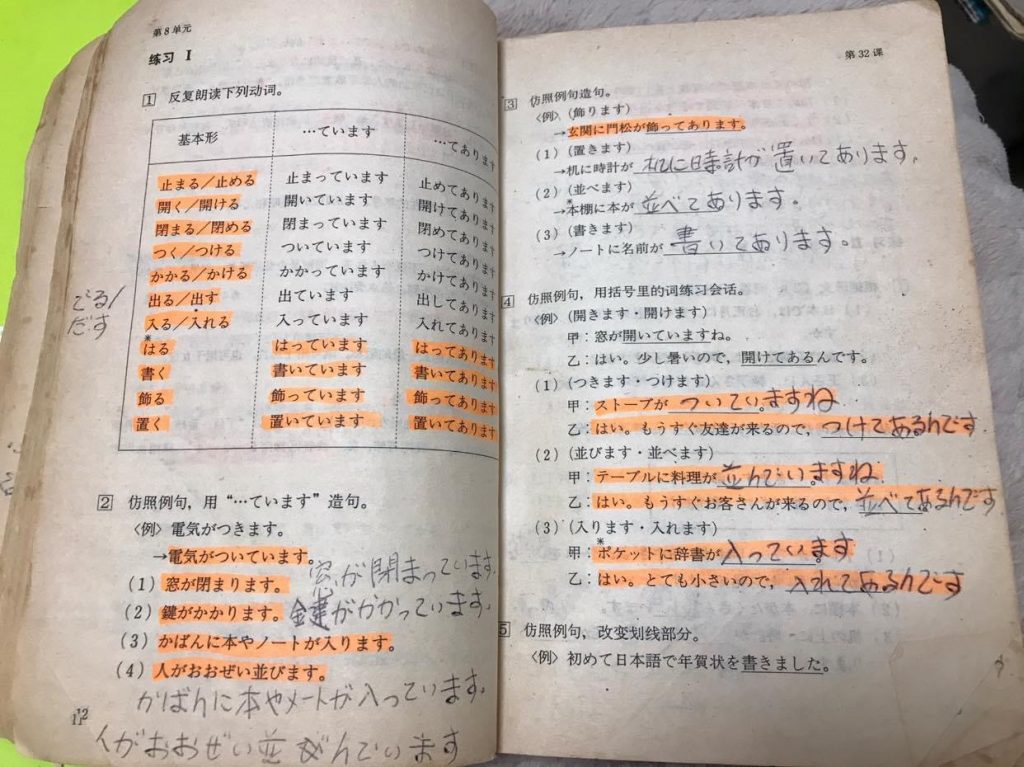 第8单元
练习 I
1 反复朗读下列动词。
基本形 …ています …てあります
止まる／止める 止まっています 止めてあります
開く／開ける 開いています 開けてあります
閉まる／閉める 閉まっています 閉めてあります
つく／つける ついています つけてあります
かかる／かける かかっています かけてあります
出る／出す 出ています 出してあります
でる/
だす
入る／入れる 入っています 入れてあります
はる はっています はってあります
書く 書いています 書いてあります
飾る 飾っています 飾ってあります
置く 置いています 置いてあります
2 仿照例句，用“…ています”造句。
〈例〉電気がつきます。
→電気がついています。
(1) 窓が閉まります。 窓が閉まっています。
(2) 鍵がかかります。 鍵がかかっています。
(3) かばんに本やノートが入ります。
(4) 人がおおぜい並びます。
かばんに本やメートが入っています。
人がおおぜい並んでいます
12
第32课
3 仿照例句造句。
〈例〉(飾ります)
→玄関に門松が飾ってあります。
(1) (置きます)
→机に時計が 机に時計が 置いてあります。
(2) (並べます)
→本棚に本が 並べてあります。
(3) (書きます)
→ノートに名前が 書いてあります。
4 仿照例句，用括号里的词练习会话。
〈例〉(開きます・開けます)
甲：窓が開いていますね。
乙：はい。少し暑いので，開けてあるんです。
(1) (つきます・つけます)
甲：ストーブが ついていますね
乙：はい。もうすぐ友達が来るので，つけてあるんです
(2) (並びます・並べます)
甲：テーブルに料理が 並んでいますね
乙：はい。もうすぐお客さんが来るので，並べてあるんです
(3) (入ります・入れます)
甲：ポケットに辞書が 入っています
乙：はい。とても小さいので，入れてあるんです
5 仿照例句，改变划线部分。
〈例〉初めて日本語で年賀状を書きました。